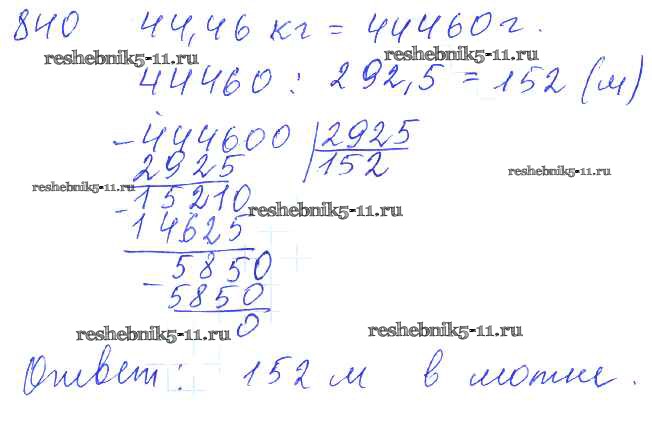 840 44,46 кг = 44460 г.
reshebnik5-11.ru reshebnik5-11.ru
44460 : 292,5 = 152 (м)
- 444600 | 2925
2925 | 152
reshebnik5-11.ru reshebnik5-11.ru
- 15210
reshebnik5-11.ru
14625
- 5850
5850
0
reshebnik5-11.ru reshebnik5-11.ru
Ответ: 152 м в мотке.